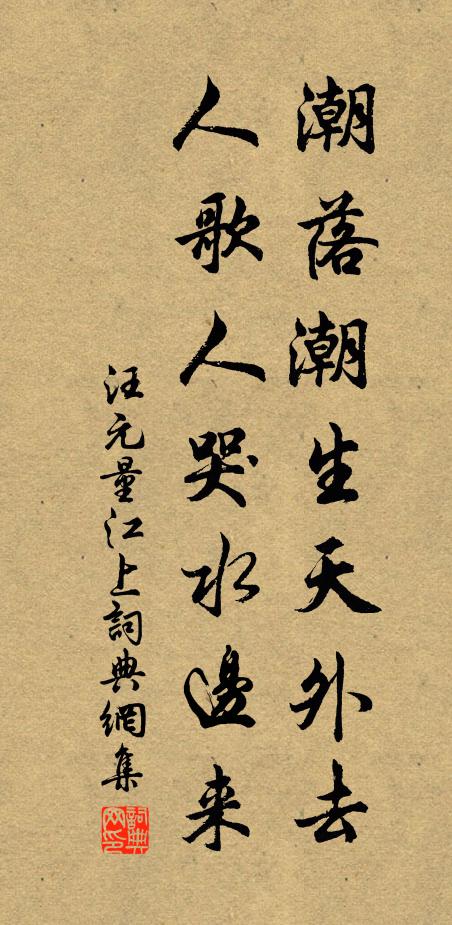 潮落潮生天外去
人歌人哭水邊来
汪元量江上詞典網集
詞典網印